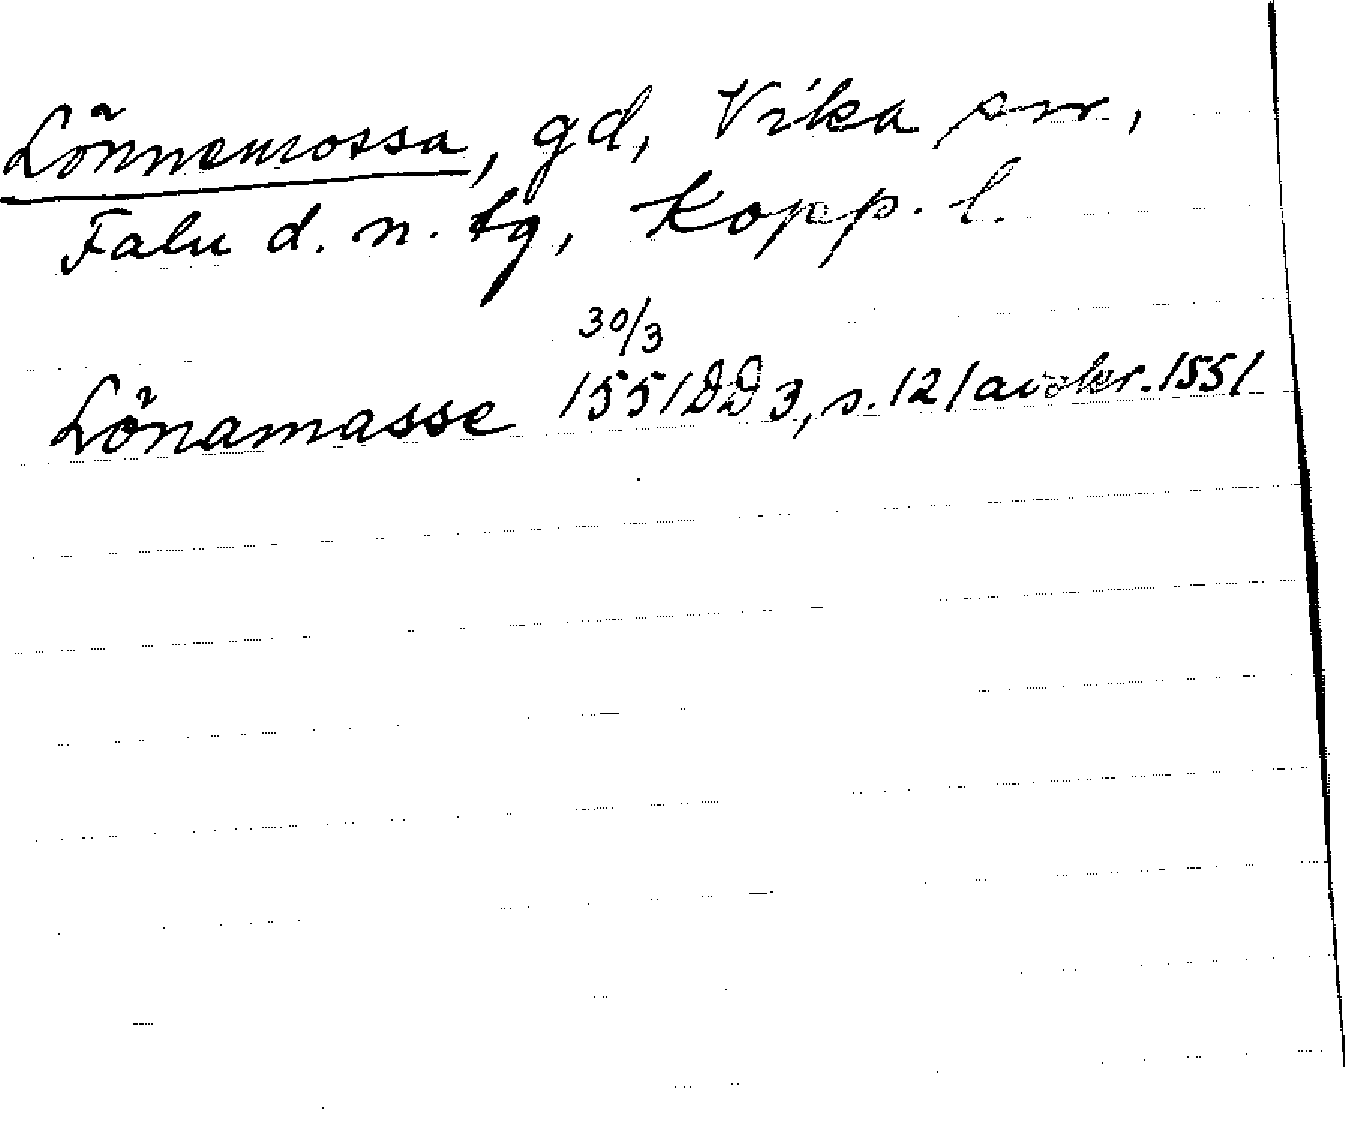 Lönnemossa, gd, Vika sn,
Falu d. n. tg, Kopp. l.
30/3
Lönamasse 1551 DD 3, s. 121 avskr. 1551